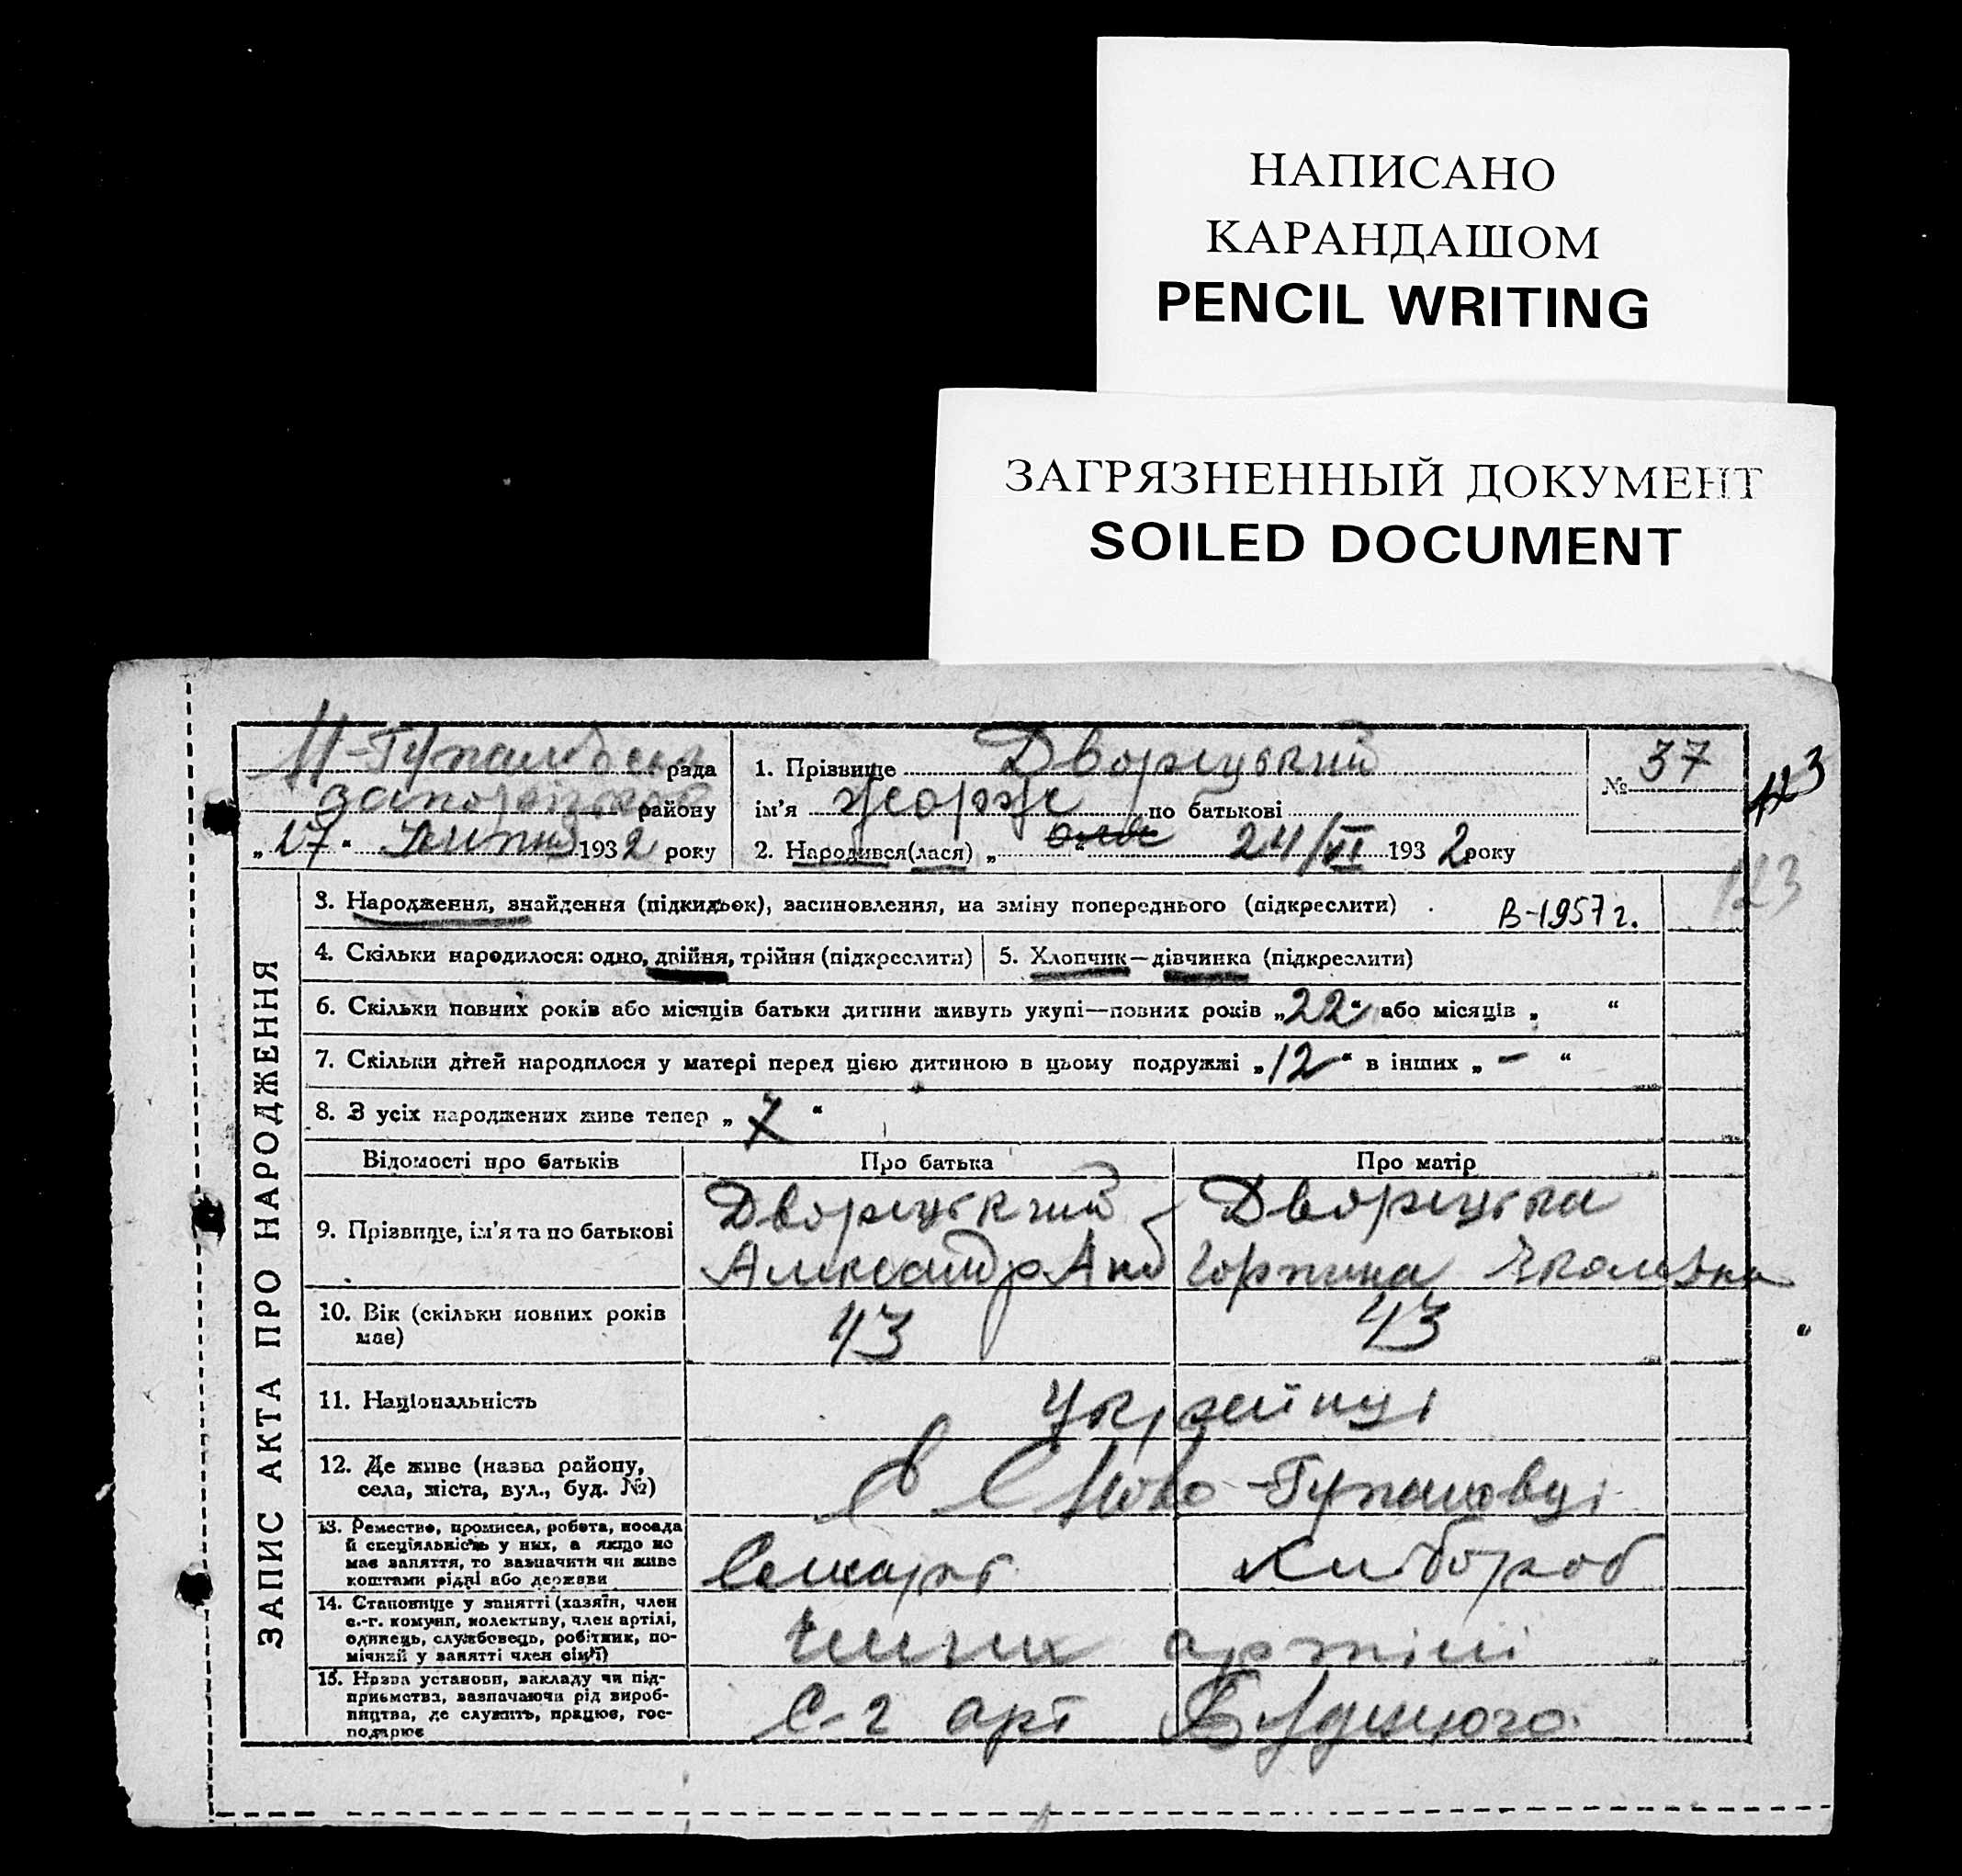 НАПИСАНО
КАРАНДАШОМ
PENCIL WRITING
ЗАГРЯЗНЕННЫЙ ДОКУМЕНТ
SOILED DOCUMENT
рада
району
„27“ Липня 1932 року
1. Прізвище Дворицький
ім'я Жорж по батькові
2. Народився(лася) „ 24/VI 1932 року
№ 37
113
123
ЗАПИС АКТА ПРО НАРОДЖЕННЯ
3. Народження, знайдення (підкидьок), засиновлення, на зміну попереднього (підкреслити) В-1957г.
4. Скільки народилося: одно, двійня, трійня (підкреслити)
5. Хлопчик—дівчинка (підкреслити)
6. Скільки повних років або місяців батьки дитини живуть укупі—повних років „22“ або місяців „ “
7. Скільки дітей народилося у матері перед цією дитиною в цьому подружжі „12“ в інших „-“
8. З усіх народжених живе тепер „7“
Відомості про батьків
Про батька
Про матір
9. Прізвище, ім'я та по батькові
Дворицький
Александр Анд
Дворицька
Горпина
10. Вік (скільки повних років
має)
43
43
11. Національність
Українці
12. Де живе (назва району,
села, міста, вул., буд. №)
в с Ново-Гупаловці
13. Ремество, промисел, робота, посада
й спеціяльність у них, а якщо не
має заняття, то зазначити чи живе
коштами рідні або держави
Хлібороб
14. Становище у занятті (хазяїн, член
с.-г. комуни, колективу, член артілі,
одинець, службовець, робітник, по-
мічний у занятті член сім'ї)
член артілі
15. Назва установи, закладу чи під-
приємства, зазначаючи рід вироб-
ництва, де служить, працює, гос-
подарює
С-г арт Будьоного